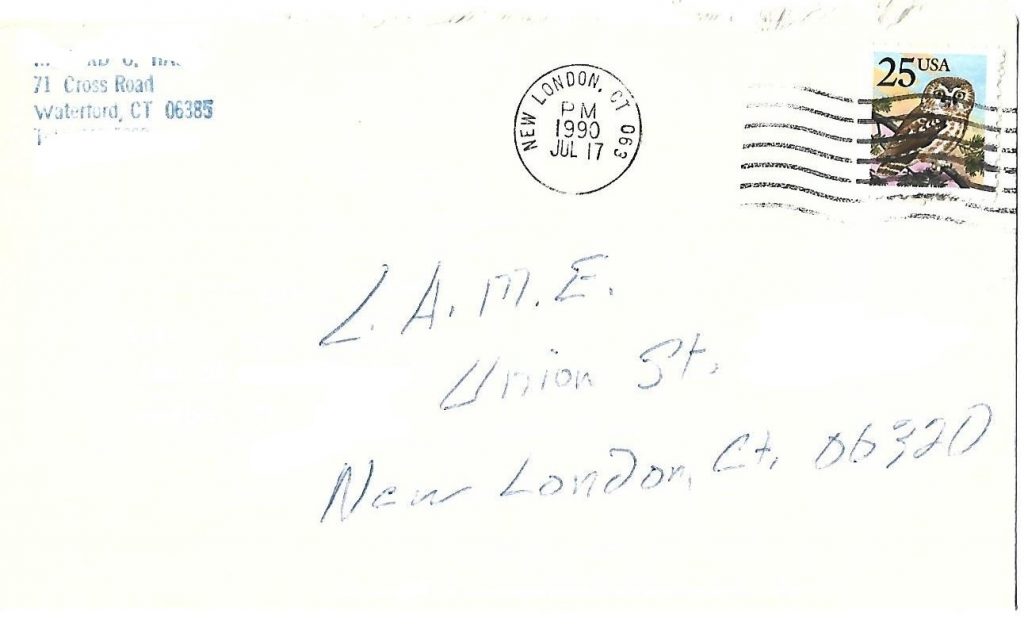 71 Cross Road
Waterford, CT 06385
NEW LONDON, CT 063
PM
1990
JUL 17
25 USA
L.A.M.E.
Union St.
New London, Ct. 06320